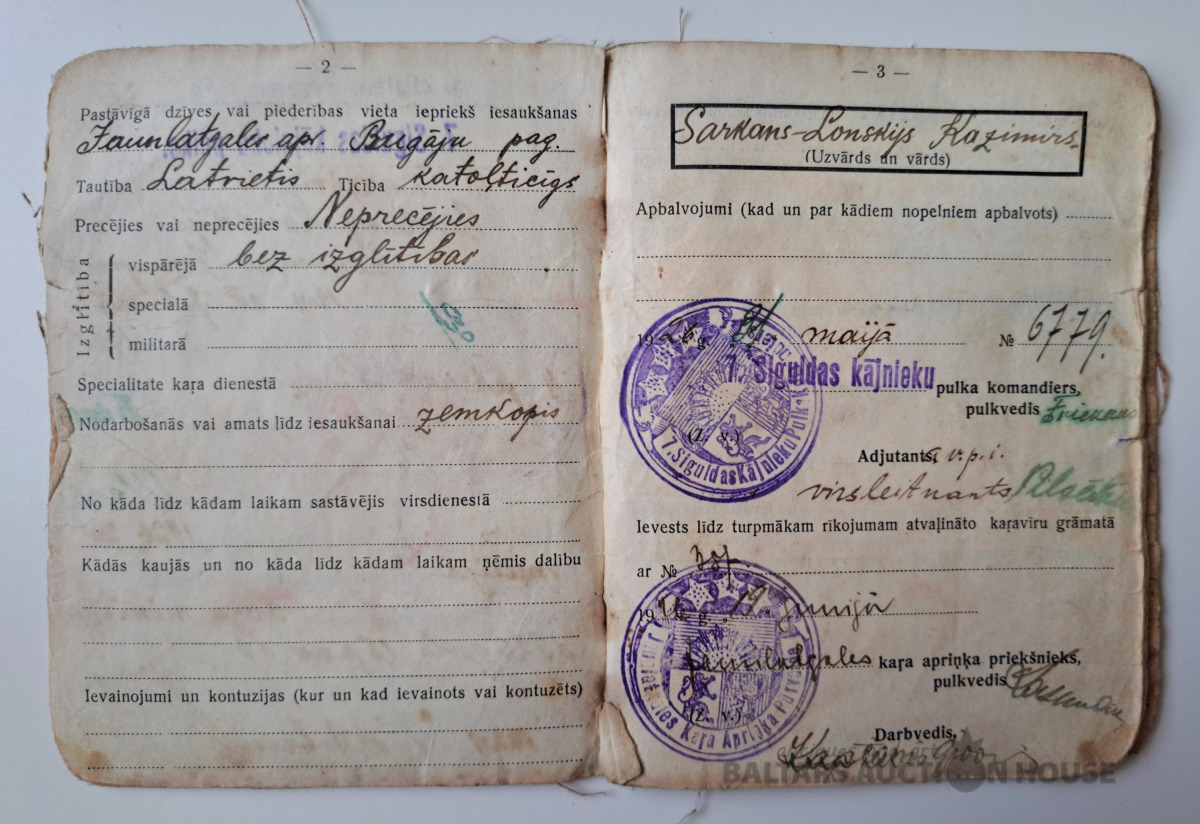 — 2 —
Pastāvīgā dzīves vai piederības vieta iepriekš iesaukšanas
Jaunlatgales apr. Bugāju pag.
Tautība Latvietis Ticība katoļticīgs
Precējies vai neprecējies Neprecējies
Izglītība
vispārējā bez izglītības
specialā
militarā
Specialitate kaŗa dienestā
Nodarbošanās vai amats līdz iesaukšanai zemkopis
No kāda līdz kādam laikam sastāvējis virsdienestā
Kādās kaujās un no kāda līdz kādam laikam ņēmis dalību
Ievainojumi un kontuzijas (kur un kad ievainots vai kontuzēts)
— 3 —
Sarkans-Lonskijs Kazimirs.
(Uzvārds un vārds)
Apbalvojumi (kad un par kādiem nopelniem apbalvots)
1926 g. 31 maijā № 6779.
7. Siguldas kājnieku pulka komandiers,
pulkvedis
(Z. v.)
7. Siguldas Kājnieku Pulks
Adjutants, v.p.i.
virsleitnants
Ievests līdz turpmākam rīkojumam atvaļināto kaŗavīru grāmatā
ar №
1926 g. 19. Junijā
Jaunlatgales kaŗa apriņķa priekšnieks,
pulkvedis
(Z. v.)
Kaŗa Apriņķa Pārvalde
Darbvedis,
Kapteinis
BALTARS AUCTION HOUSE